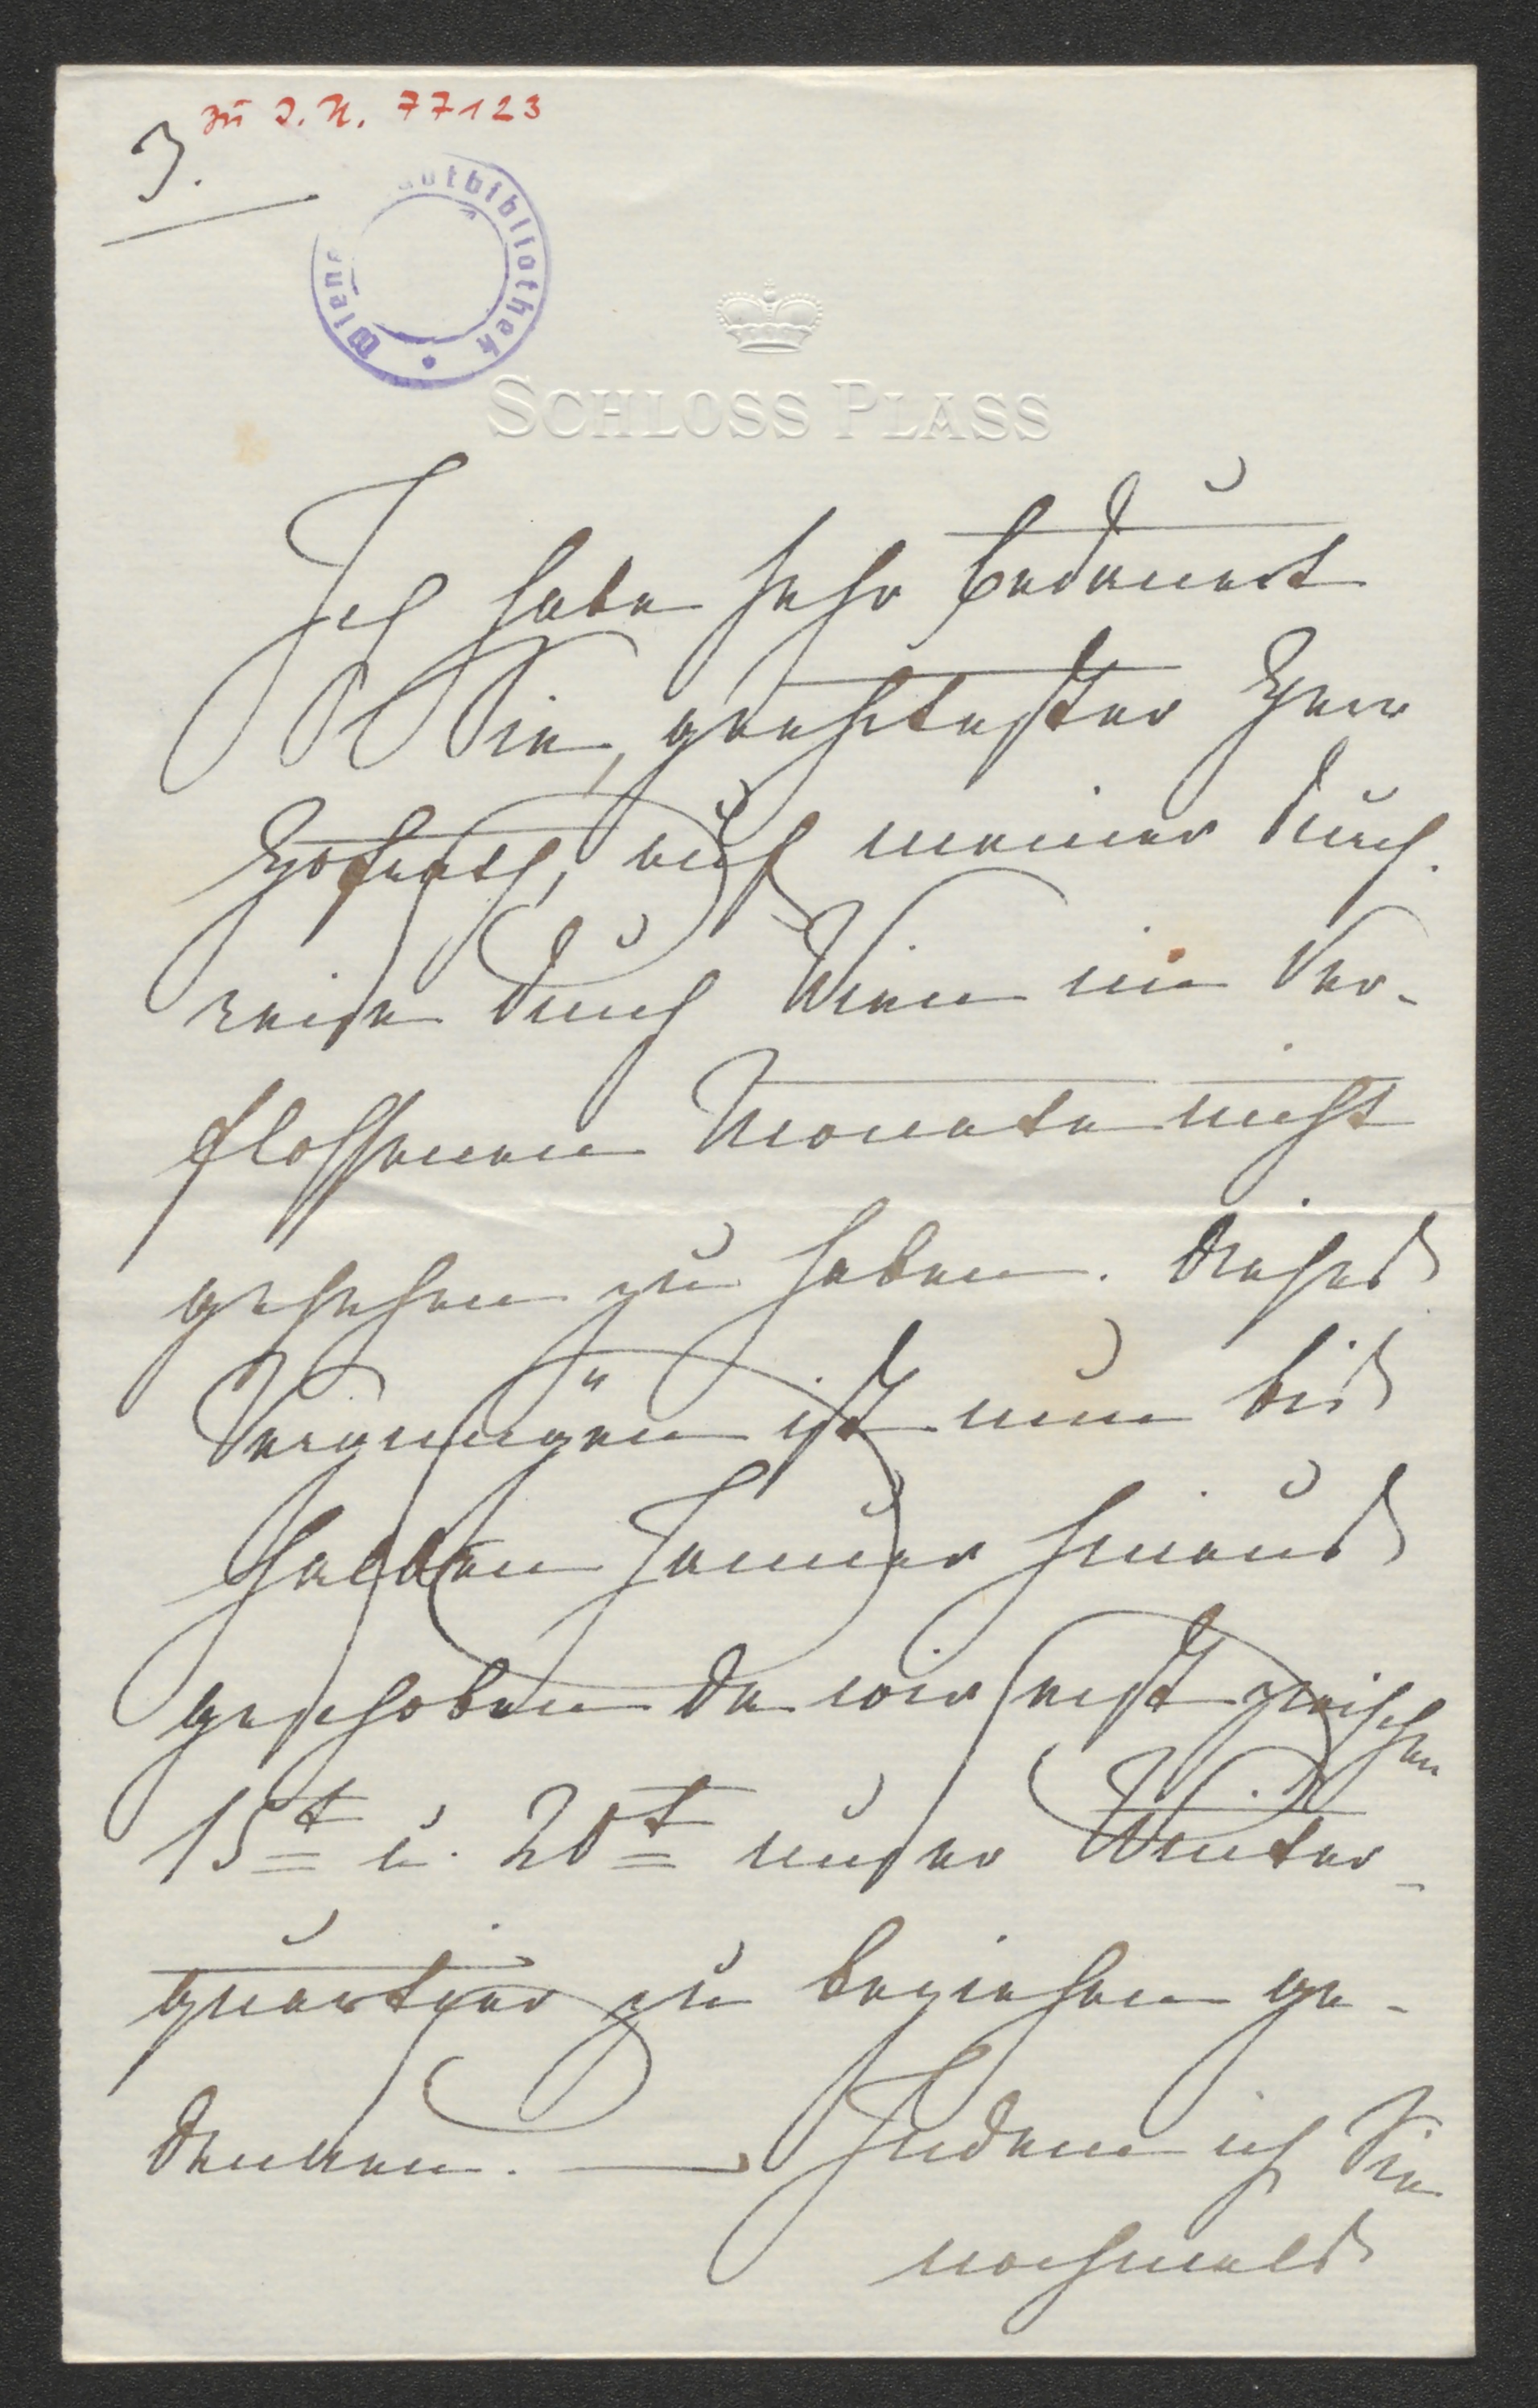 zu I. N. 77123
3.
Wiener Stadtbibliothek
SCHLOSS PLASS
Ich habe sehr bedauert
Sie, geehrtester Herr
Hofrath, auf meiner Durch-
reise durch Wien im ver-
flossenen Monate nicht
gesehen zu haben. Dieses
Vergnügen ist nun bis
halben Januar hinaus
geschoben da wir erst zwischen
15t u. 20t unser Winter-
quartier zu beziehen ge-
denken. — Indem ich Sie
nochmals